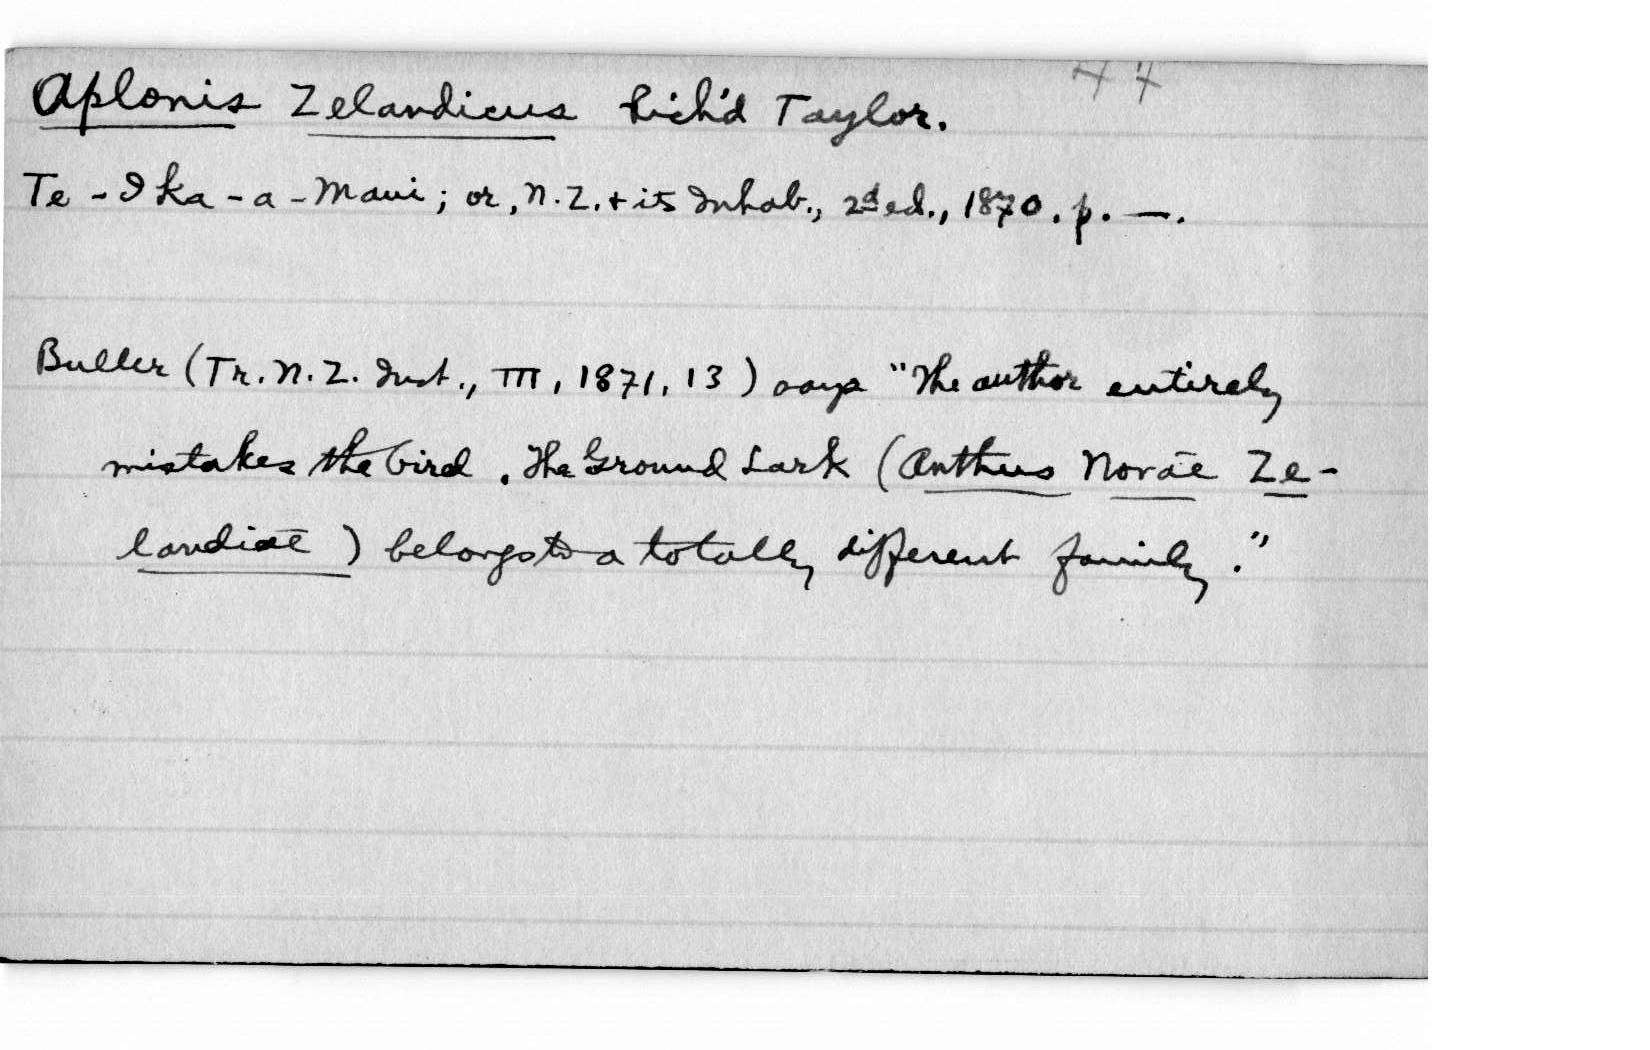 Aplonis Zelandicus Rich'd Taylor.
Te-Ika-a-Maui; or, N.Z. + its Inhab., 2d ed., 1870. p. —.
Buller (Tr. N.Z. Inst., III, 1871, 13) says "The author entirely
mistakes the bird. The Ground Lark (Anthus Novae Ze-
landiae) belongs to a totally different family."